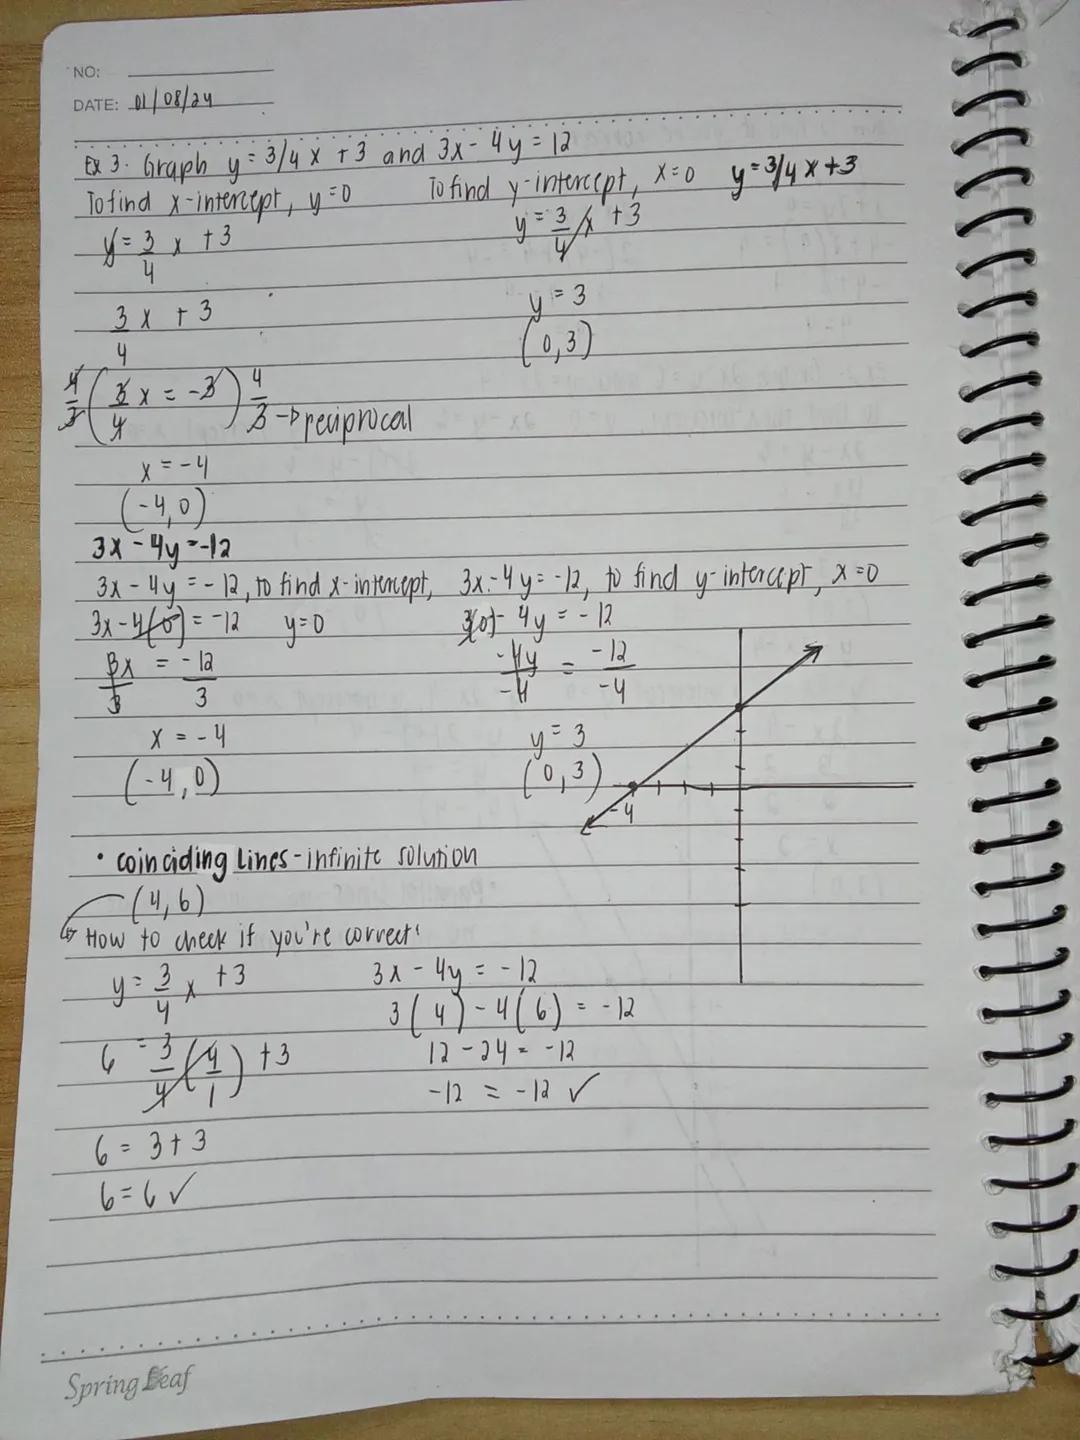 NO:
DATE: 01/08/24
Ex 3. Graph y = 3/4 x + 3 and 3x - 4y = 12
To find x-intercept, y = 0 To find y-intercept, x = 0 y = 3/4 x + 3
y = 3/4 x + 3 y = 3/4 x + 3
3/4 x + 3 y = 3
(0,3)
4/3 ( 3/4 x = -3 ) 4/3 → reciprocal
x = -4
(-4,0)
3x - 4y = -12
3x - 4y = -12, to find x-intercept, 3x - 4y = -12, to find y-intercept, x = 0
3x - 4(0) = -12 y = 0 3(0) - 4y = -12
3x/3 = -12/3 -4y/-4 = -12/-4
x = -4 y = 3
(-4,0) (0,3)
-4
• coinciding Lines - infinite solution
(4,6)
How to check if you're correct:
y = 3/4 x + 3 3x - 4y = -12
3(4) - 4(6) = -12
6 = 3/4 (4/1) + 3 12 - 24 = -12
-12 = -12 ✓
6 = 3 + 3
6 = 6 ✓
Spring Leaf